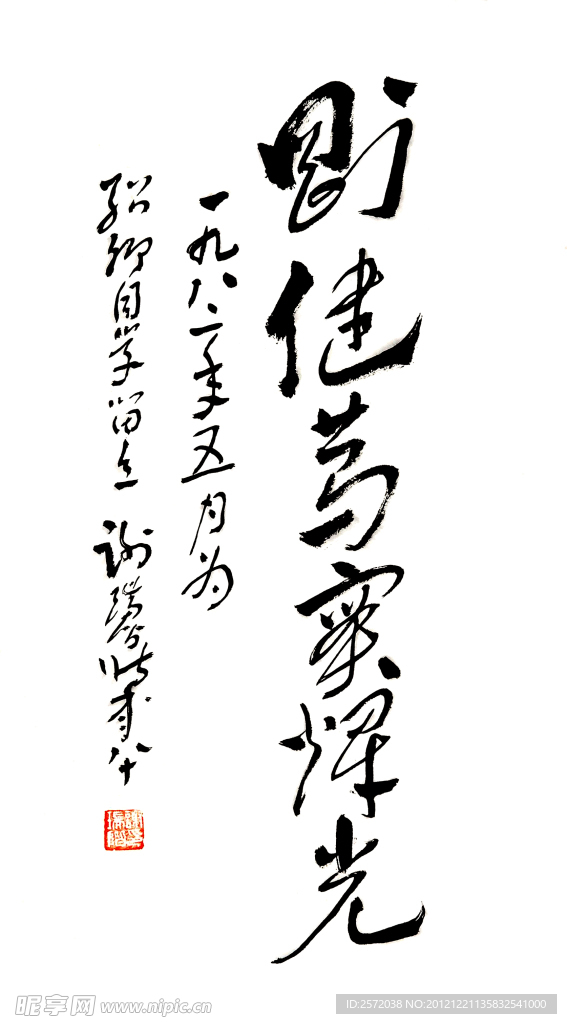 刚健笃实辉光
一九八二年五月为
韶卿同学留念 谢瑞阶时年八十
昵享网 www.nipic.cn
ID:2572038 NO:20121221135832541000